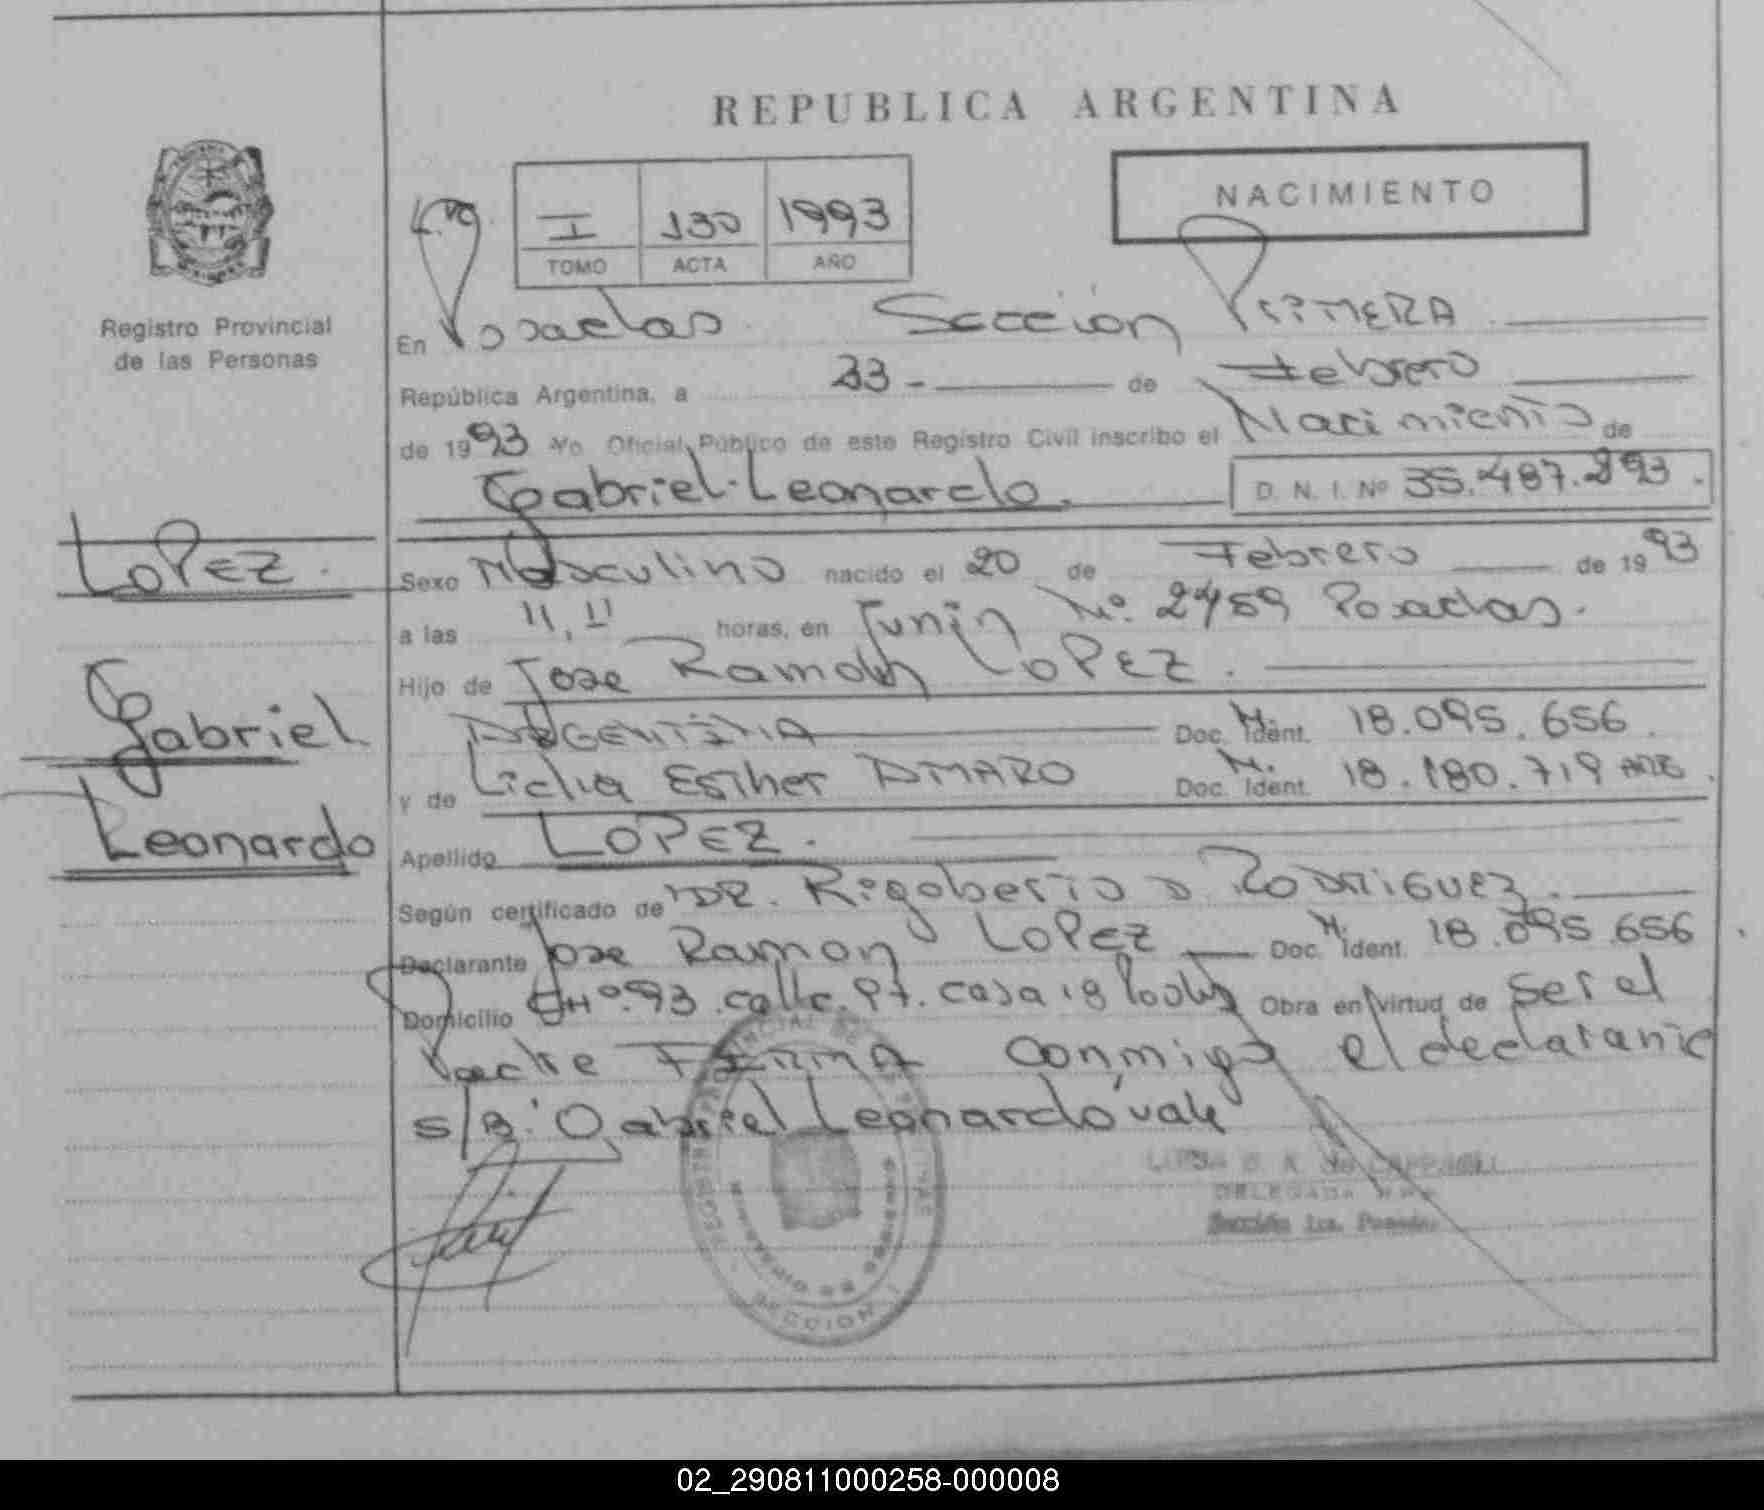 REPUBLICA ARGENTINA
NACIMIENTO
I 130 1993
TOMO ACTA AÑO
Registro Provincial
de las Personas
En Posadas Sección PriMERA
República Argentina, a 23 - de Febrero
de 1993 Yo Oficial Público de este Registro Civil inscribo el Nacimiento de
Gabriel Leonardo. D. N. I. Nº 35.487.293.
LoPEZ.
Gabriel
Leonardo
Sexo Masculino nacido el 20 de Febrero de 1993
a las 11,11 horas, en Junin Nº 2459 Posadas.
Hijo de Jose Ramon LoPEZ.
ARGENTINA Doc. Ident. M. 18.095.656.
y de Lidia Esther AMARO Doc. Ident. M. 18.180.719 ARG.
Apellido LOPEZ.
Según certificado de DR. Rigoberto D RODRIGUEZ.
Declarante Jose Ramon LoPez Doc. Ident. M. 18.095.656.
Domicilio CHº.93.calle.97.casa 18 Obra en virtud de Ser el
Padre FIRMA conmigo el declarante
s/B: Gabriel Leonardo vale
DELEGADA
Sección 1ra. Posadas
SECCION 1
02_290811000258-000008